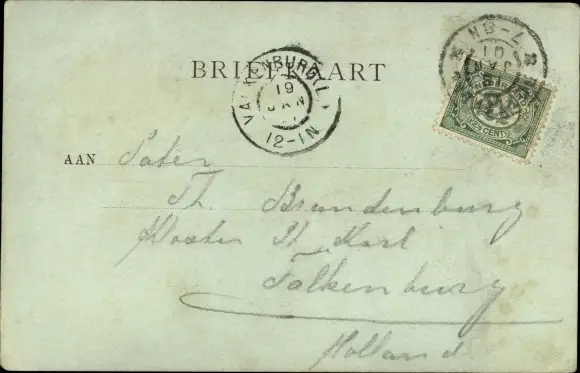 BRIEFKAART
VALKENBURG (L)
19
JAN
12-1N
2½ CENT
AAN Pater
Th. Brandenburg
Kloster St. Karl
Falkenburg
Holland